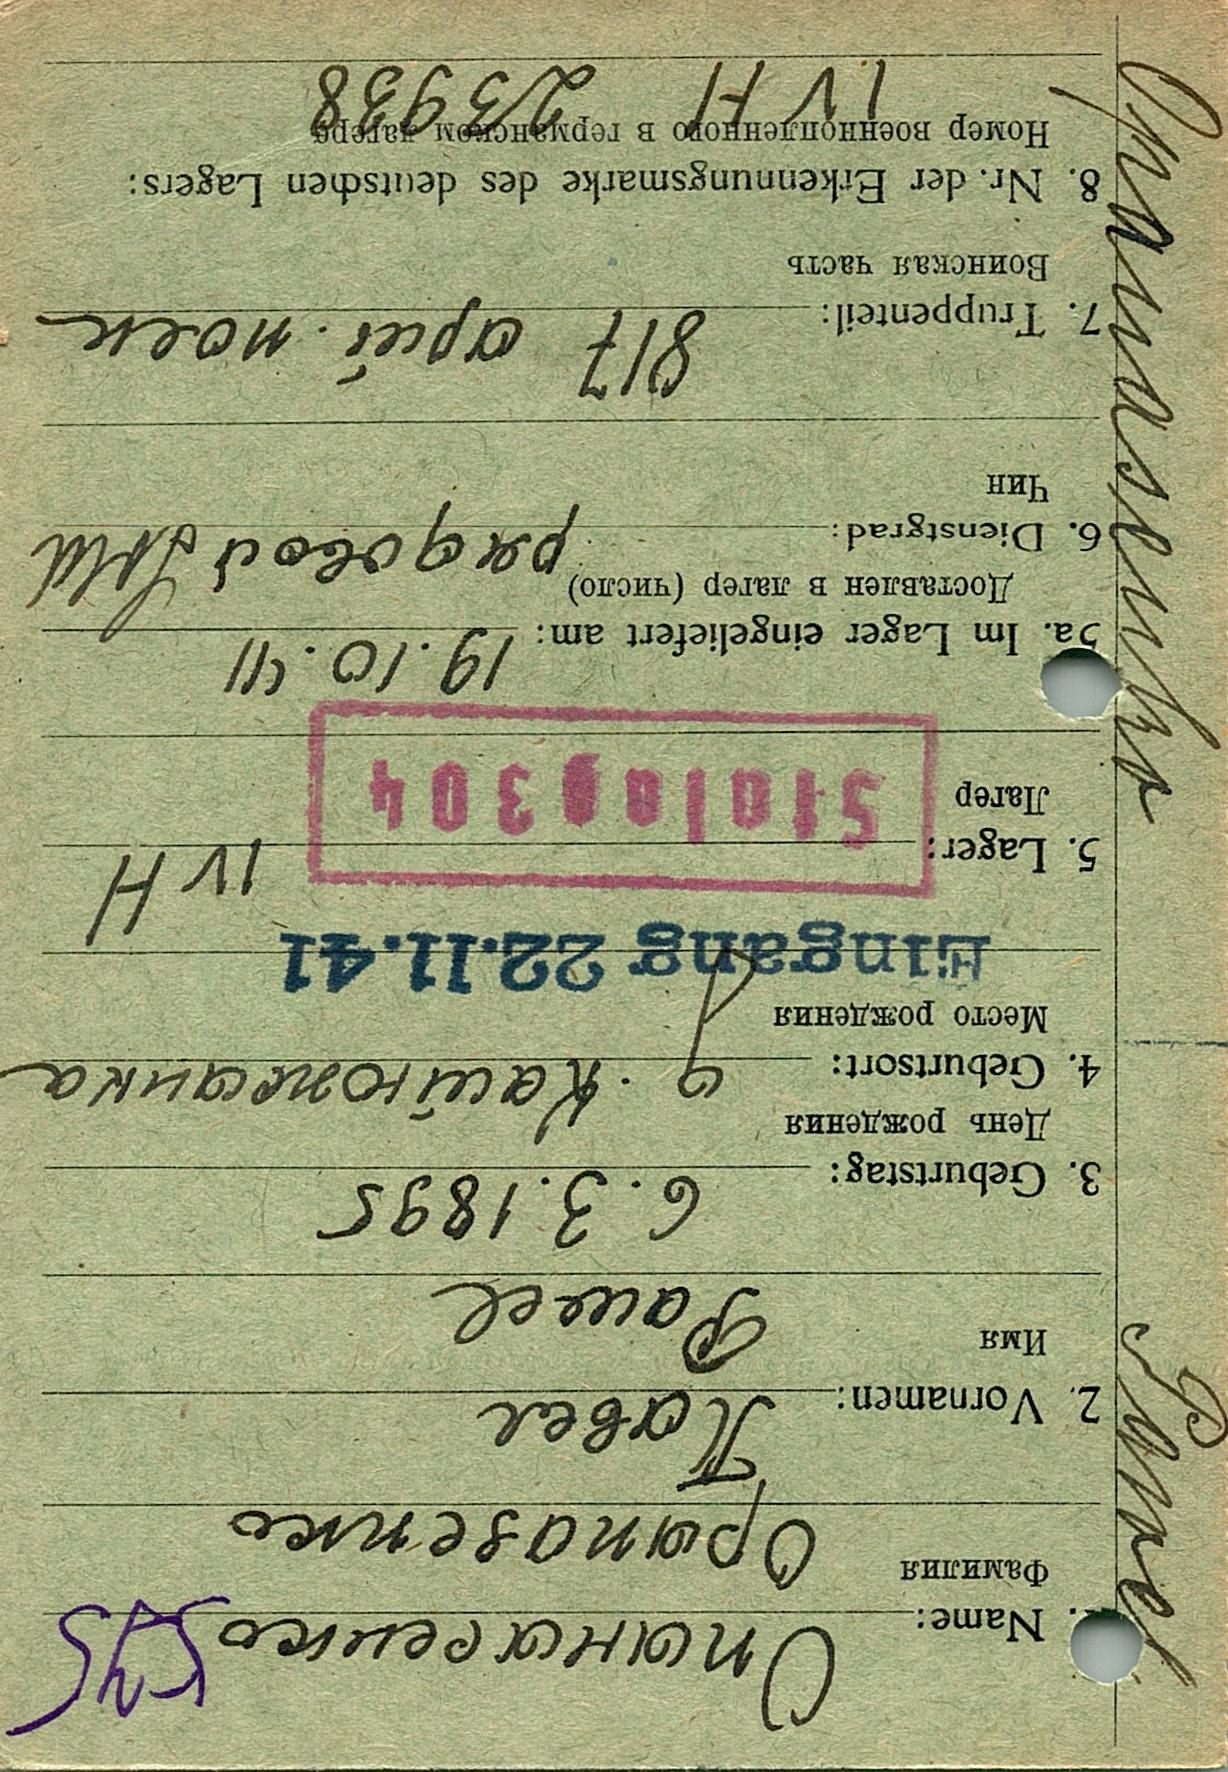 545
1. Name: Опанасенко
Фамилия
Opanasenko
2. Vornamen: Павел
Имя
Pawel
3. Geburtstag: 6.3.1895
День рождения
4. Geburtsort:
Место рождения
Eingang 22.11.41
5. Lager: IV H
Лагер
Stalag 304
5a. Im Lager eingeliefert am: 19.10.41
Доставлен в лагер (число)
6. Dienstgrad: рядовой Sold
Чин
7. Truppenteil: 817 арт. полк
Воинская часть
8. Nr. der Erkennungsmarke des deutschen Lagers:
Номер военнопленного в германском лагере
IV H 23938
Opanasenko Pawel